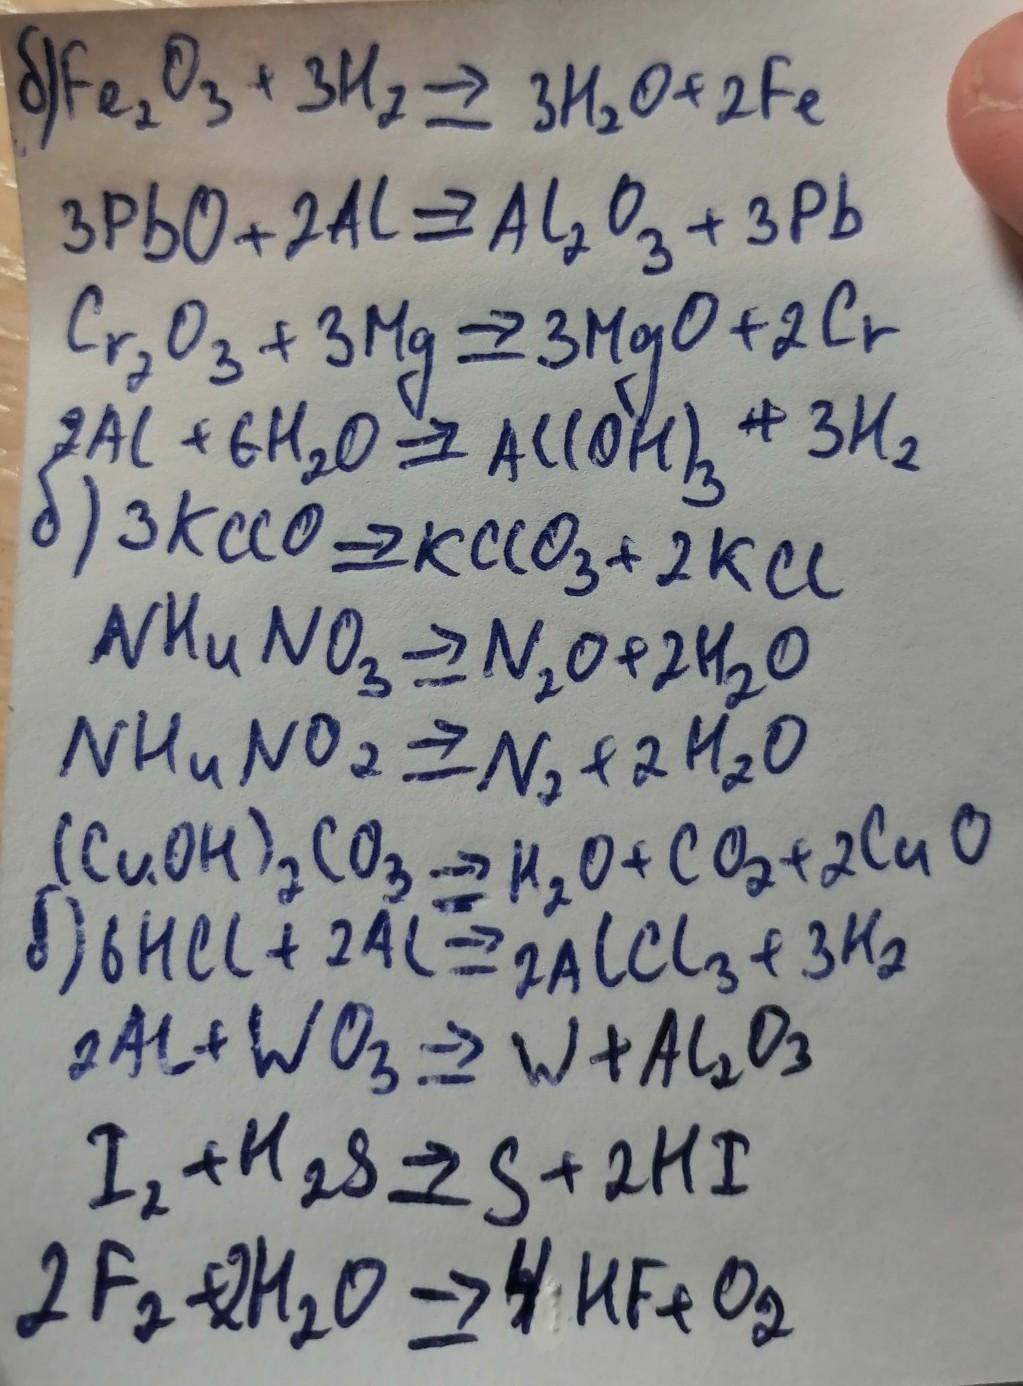 б) Fe₂O₃ + 3H₂ ⇒ 3H₂O + 2Fe
3PbO + 2Al ⇒ Al₂O₃ + 3Pb
Cr₂O₃ + 3Mg ⇒ 3MgO + 2Cr
2Al + 6H₂O ⇒ Al(OH)₃ + 3H₂
б) 3KClO ⇒ KClO₃ + 2KCl
NH₄NO₃ ⇒ N₂O + 2H₂O
NH₄NO₂ ⇒ N₂ + 2H₂O
(CuOH)₂CO₃ ⇒ H₂O + CO₂ + 2CuO
б) 6HCl + 2Al ⇒ 2AlCl₃ + 3H₂
2Al + WO₃ ⇒ W + Al₂O₃
I₂ + H₂S ⇒ S + 2HI
2F₂ + 2H₂O ⇒ 4HF + O₂